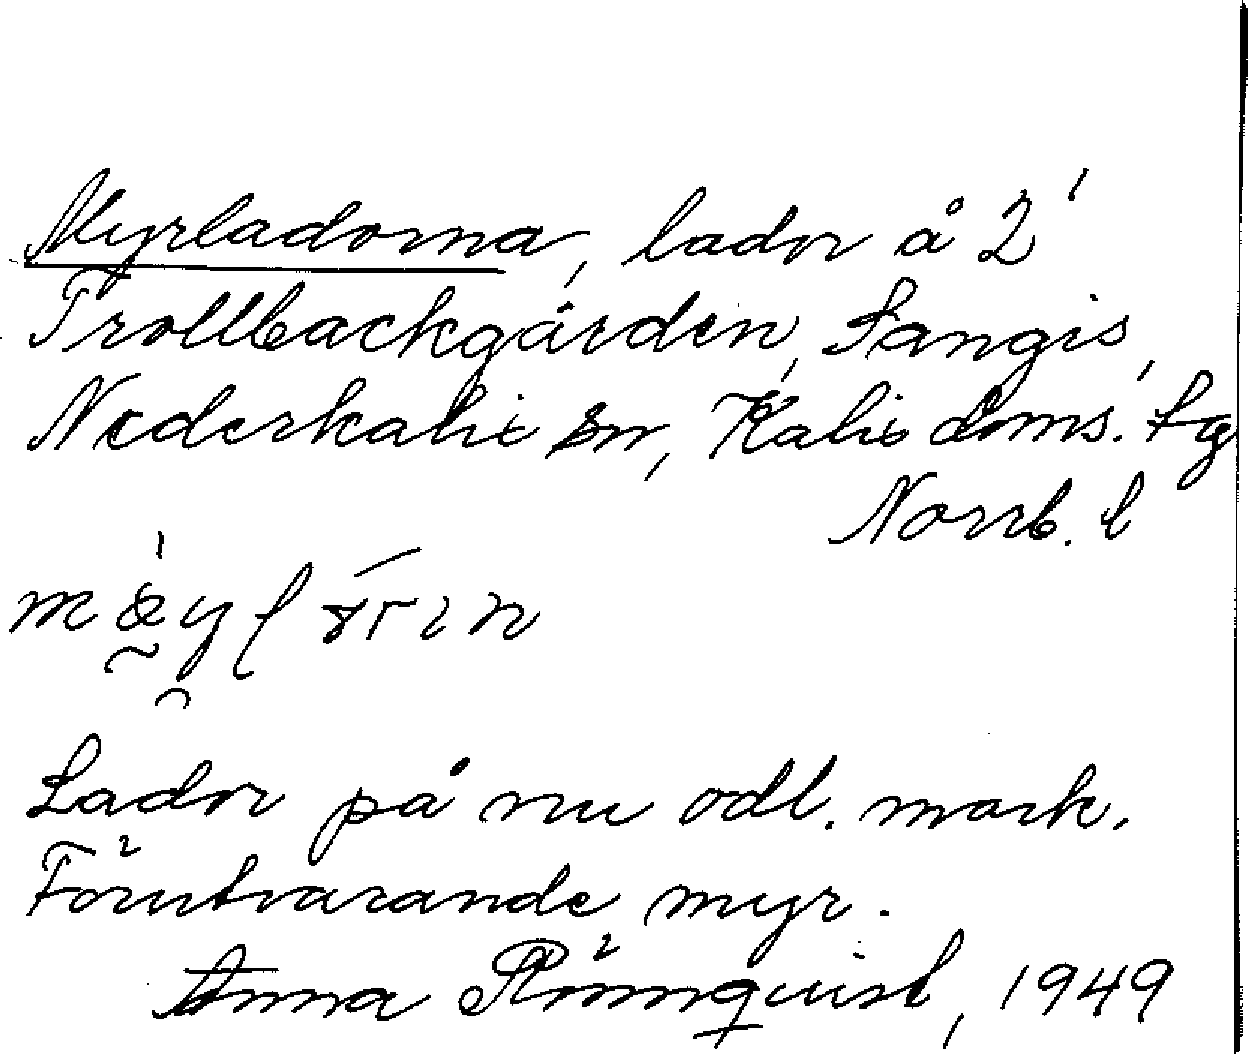 Myrladorna, lador å 2¹
Trollbackgården, Sangis,
Nederkalix sn, Kalix doms. tg
Norrb. l
Lador på nu odl. mark.
Förutvarande myr.
Anna Rönnquist, 1949